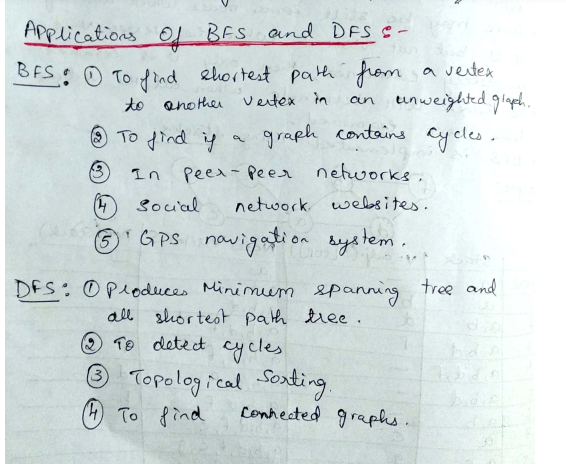 Applications Of BFS and DFS :-
BFS : ① To find shortest path from a vertex
to another vertex in an unweighted graph.
② To find if a graph contains cycles.
③ In peer-peer networks.
④ Social network websites.
⑤ GPS navigation system.
DFS : ① Produces Minimum spanning tree and
all shortest path tree.
② To detect cycles
③ Topological Sorting.
④ To find connected graphs.